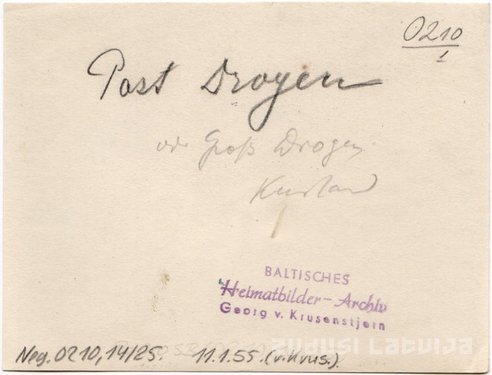 0210
1
Past Drogen
od Groß Drogen
Kurland
BALTISCHES
Heimatbilder-Archiv
Georg v. Krusenstjern
ZUDUSI LATVIJA
Neg. 0210, 14/25. 11.1.55. (v.Krus.).